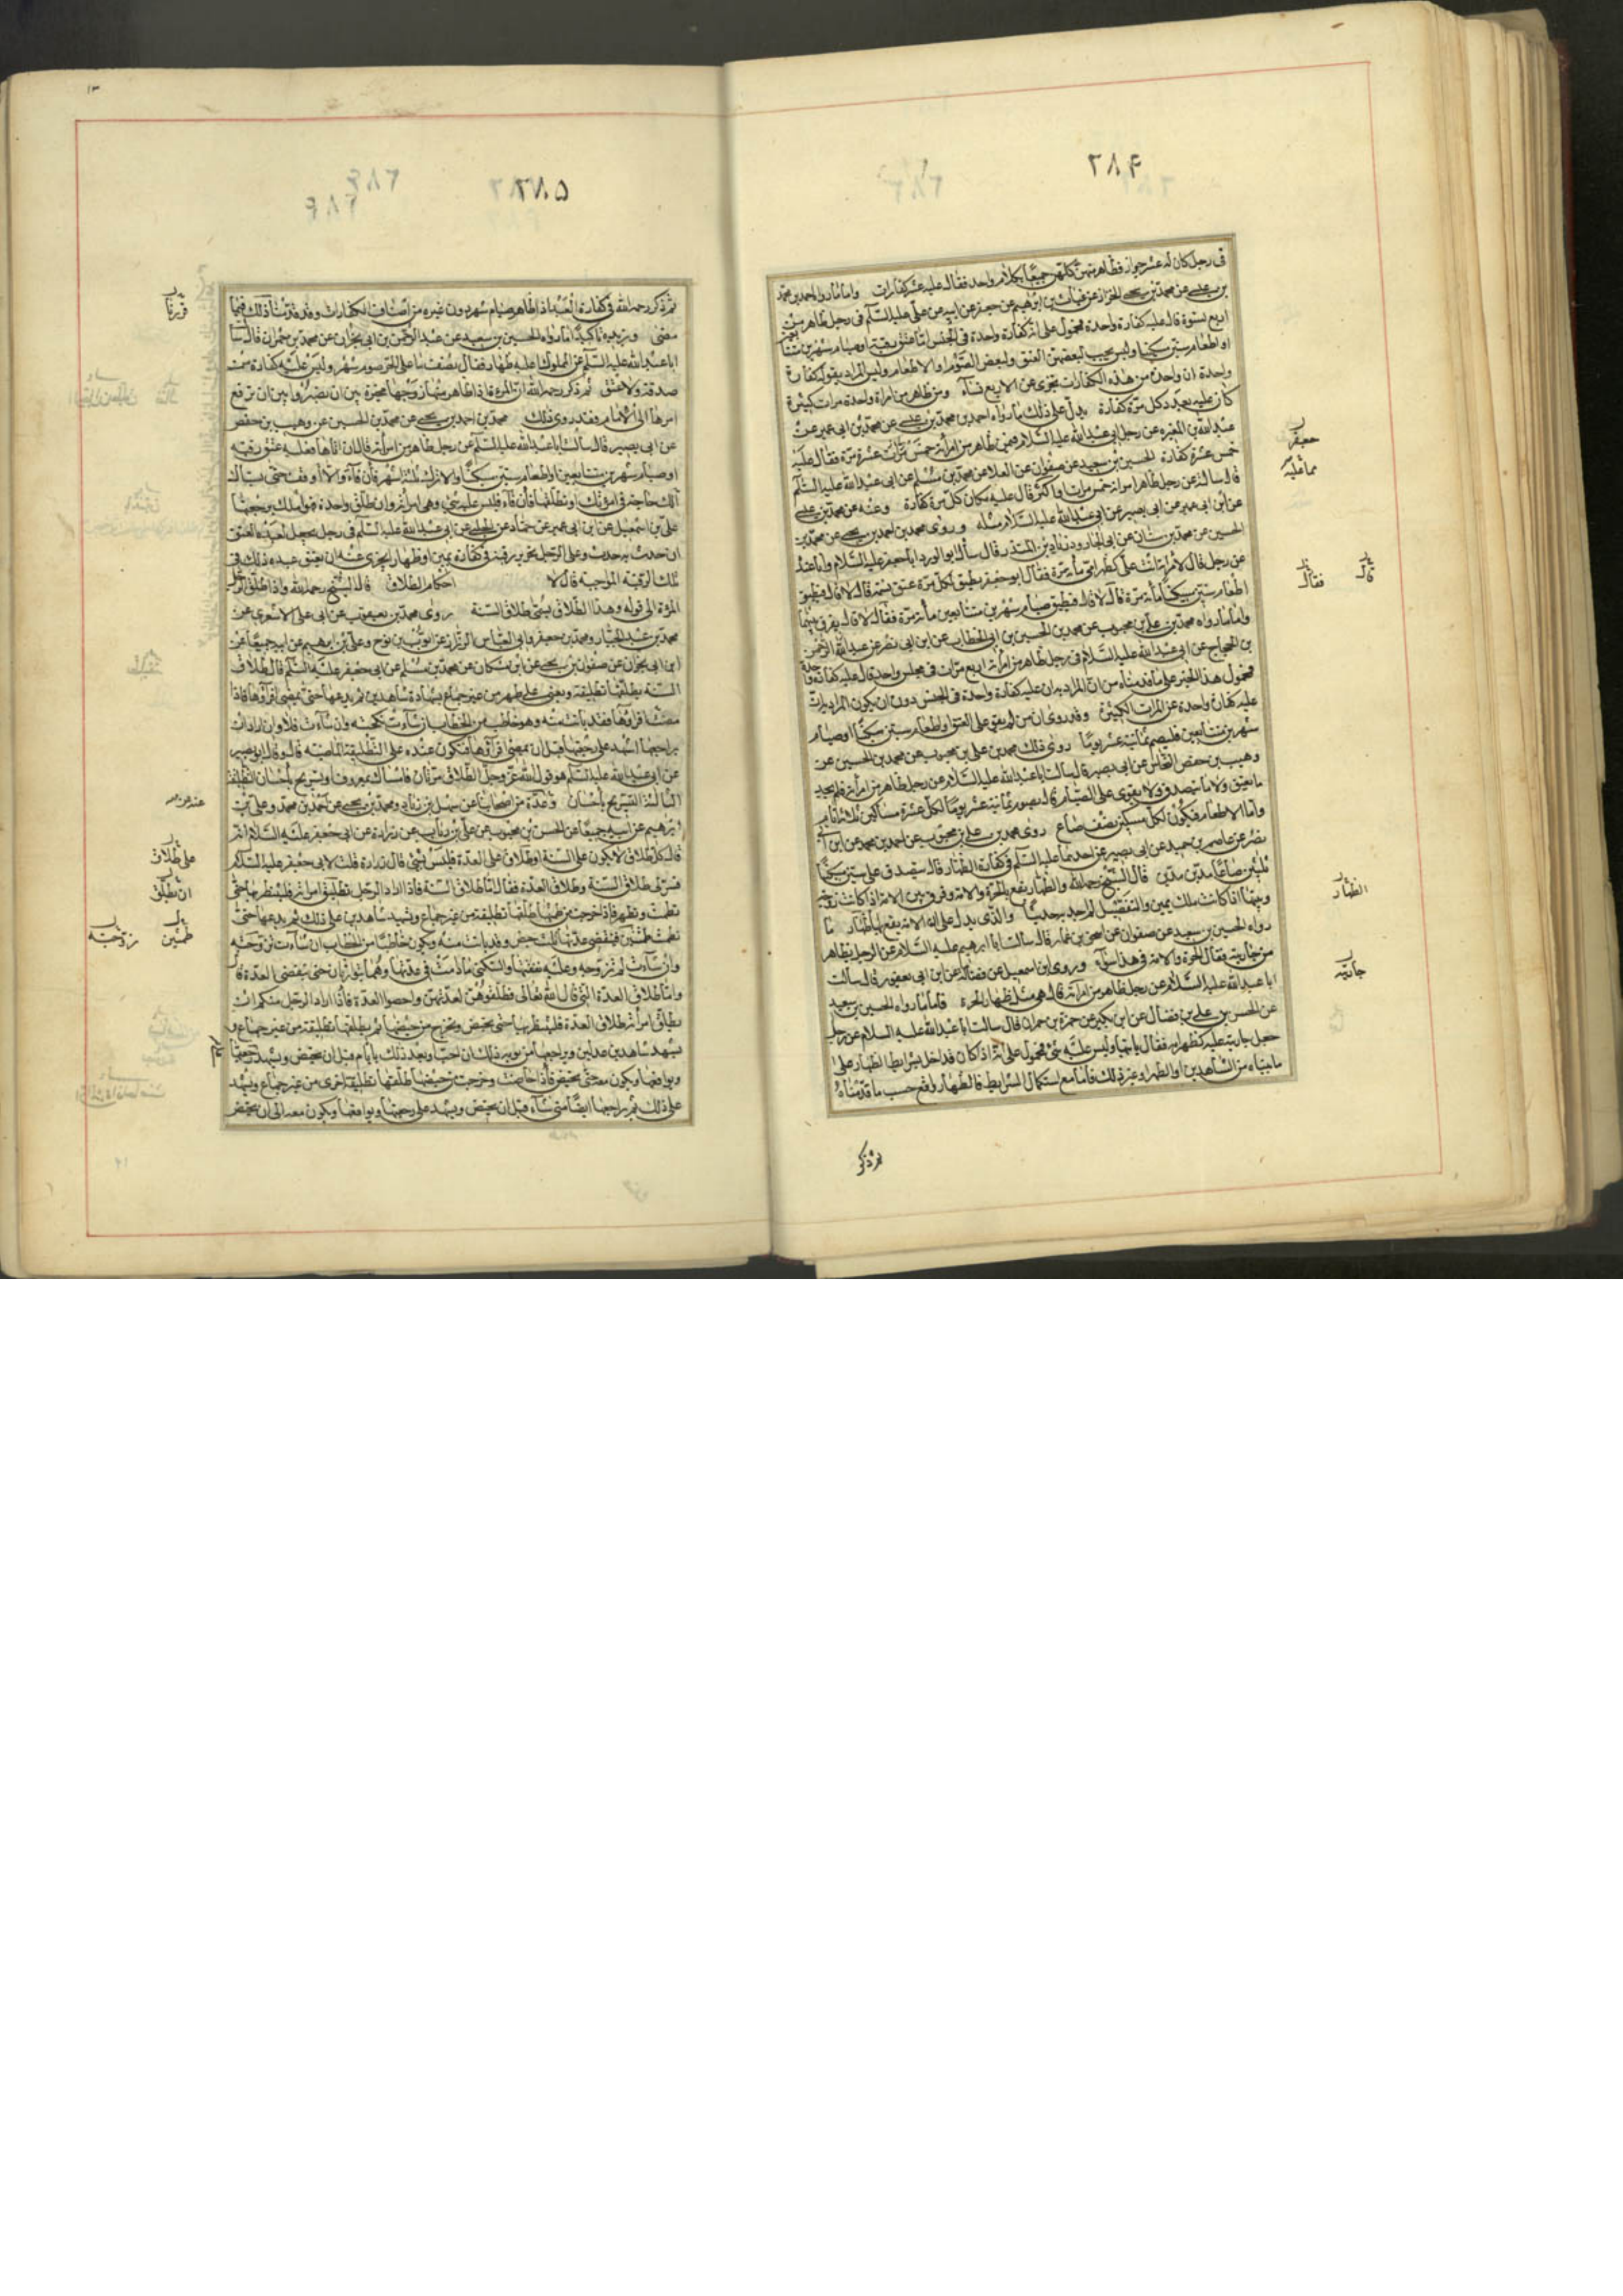 في رجل كان له عشر جوار فظاهر منهن كلهن جميعا بكلام واحد فقال عليه عشر كفارات واما ما رواه احمد بن محمد
بن عيسى عن محمد بن يحيى الخزاز عن غياث بن ابرهيم عن جعفر عن ابيه عن علي عليه السلم في رجل ظاهر من
اربع نسوة قال عليه كفارة واحدة فمحمول على انه كفارة واحدة في الجنس اما عتق رقبة او صيام شهرين متتابعين
او اطعام ستين مسكينا وليس يجب لبعضهن العتق ولبعض الصوم او الاطعام وليس المراد بقوله كفارة
واحدة ان واحدة من هذه الكفارات تجزى عن الاربع نساء ومن ظاهر من امراة واحدة مرات كثيرة
كان عليه بعدد كل مرة كفارة يدل على ذلك ما رواه احمد بن محمد بن عيسى عن محمد بن ابى عمير عن
عبد الله بن المغيره عن رجل ابى عبد الله عليه السلام فيمن ظاهر من امراته خمس عشرة مرة فقال عليه
خمس عشرة كفارة الحسين بن سعيد عن صفوان عن العلا عن محمد بن مسلم عن ابى عبد الله عليه السلم
قال سالته عن رجل ظاهر امراته خمس مرات او اكثر قال عليه مكان كل مرة كفارة وعنه عن محمد بن عيسى
عن ابن ابى عمير عن ابى بصير عن ابى عبد الله عليه السلام مثله وروى محمد بن احمد بن يحيى عن محمد بن
الحسين عن محمد بن سنان عن ابى الجارود زياد بن المنذر قال سال ابو الورد ابا جعفر عليه السلام وانا عنده
عن رجل قال لامراته انت على كظهر امى مأية مرة فقال ابو جعفر يطيق لكل مرة عتق نسمة قال لا قال فيطيق
اطعام ستين مسكينا مأة مرة قال لا قال فيطيق صيام شهرين متتابعين مأة مرة فقال لا قال يفرق بينهما
واما ما رواه محمد بن على بن محبوب عن محمد بن الحسين بن ابى الخطاب عن ابن ابى نصر عن عبد الرحمن
بن الحجاج عن ابى عبد الله عليه السلام في رجل ظاهر من امراته اربع مرات في مجلس واحد قال عليه كفارة واحدة
فمحمول هذا الخبر على ما قدمناه من ان المراد به ان عليه كفارة واحدة في الجنس دون ان يكون المراد به ان
عليه كفارة واحدة عن المرات الكثيرة وقد روى ان من لم يقو على العتق واطعام ستين مسكينا او صيام
شهرين متتابعين فليصم ثمانية عشر يوما روى ذلك محمد بن على بن محبوب عن محمد بن الحسين عن
وهيب بن حفص النخاس عن ابى بصير قال سالت ابا عبد الله عليه السلام عن رجل ظاهر من امراته فلم يجد
ما يعتق ولا ما يتصدق ولا يقوى على الصيام قال يصوم ثمانية عشر يوما لكل عشرة مساكين ثلثة ايام
واما الاطعام فيكون لكل مسكين نصف صاع روى محمد بن على بن محبوب عن احمد بن محمد عن ابن ابى
نصر عن عاصم بن حميد عن ابى بصير عن احدهما عليه السلم في كفارة الظهار قال يتصدق على ستين مسكينا
ثلثين صاعا مدين مدين قال الشيخ رحمه الله والظهار يقع بالحرة والامة وفرق بين الامة اذا كانت زوجة
وبينها اذا كانت ملك يمين والتفصيل لم اجد به حديثا والذى يدل على ان الامة يقع بها ظهار ما
رواه الحسين بن سعيد عن صفوان عن اسحق بن عمار قال سالت ابا ابرهيم عليه السلام عن الرجل يظاهر
من جاريته فقال الحرة والامة في هذا سوآء وروى ابن اسمعيل عن فضالة عن ابن ابى يعفور قال سالت
ابا عبد الله عليه السلام عن رجل ظاهر من امراته قال هو مثل ظهار الحرة فاما ما رواه الحسين بن سعيد
عن الحسن بن على بن فضال عن ابن بكير عن حمزة بن حمران قال سالت ابا عبد الله عليه السلام عن رجل
جعل جاريته عليه كظهر امه فقال ياتيها وليس عليه شئ فمحمول على انه اذا كان قد اخل بشرايط الظهار على
ما بيناه من الشاهدين او الطهر او غير ذلك فاما مع استكمال الشرايط فالظهار واقع حسب ما قدمناه
جعفر
مما قلته
قال
فقال
الظهار
جاريته
ثم ذكر
ثم ذكر رحمه الله في كفارة العبد اذا ظاهر صيام شهر دون غيره من اصناف الكفارات وقد قدمنا ذلك فيما
مضى ويزيده تاكيدا ما رواه الحسين بن سعيد عن عبد الرحمن بن ابى نجران عن محمد بن حمران قال سألت
ابا عبد الله عليه السلم عن المملوك اعليه ظهار فقال نصف ما على الحر صوم شهر وليس عليه كفارة من
صدقة ولا عتق ثم ذكر رحمه الله ان المرءة اذا ظاهر منها زوجها مخيرة بين ان تصبر او بين ان ترفع
امرها الى الامام وقد روى ذلك محمد بن احمد بن يحيى عن محمد بن الحسين عن وهيب بن حفص
عن ابى بصير قال سالت ابا عبد الله عليه السلم عن رجل ظاهر من امراته قال ان اتاها فعليه عتق رقبة
او صيام شهرين متتابعين او اطعام ستين مسكينا والا ترك ثلثة اشهر فان فآء والا اوقف حتى يسال
الك حاجة في امرءتك او تطلقها فان فآء فليس عليه شئ وهى امراته وان طلق واحدة فهو املك برجعتها
على بن اسمعيل عن ابن ابى عمير عن حماد عن الحلبى عن ابى عبد الله عليه السلم في رجل يجعل لعبده العتق
ان حدث به حدث وعلى الرجل تحرير رقبة في كفارة يمين او ظهار ايجزى عنه ان يعتق عبده ذلك في
تلك الرقبة الواجبة قال لا احكام الطلاق قال الشيخ رحمه الله واذا طلق الرجل
المرءة الى قوله وهذا الطلاق يسمى طلاق السنة روى محمد بن يعقوب عن ابى على الاشعرى عن
محمد بن عبد الجبار ومحمد بن جعفر وابى العباس الرزاز عن ايوب بن نوح وعلى بن ابرهيم عن ابيه جميعا عن
ابن ابى نجران عن صفوان بن يحيى عن ابن مسكان عن محمد بن مسلم عن ابى جعفر عليه السلم قال طلاق
السنة يطلقها تطليقة ويعنى على طهر من غير جماع بشهادة شاهدين ثم يدعها حتى تمضى اقرآؤها فاذا
مضت اقراؤها فقد بانت منه وهو خاطب من الخطاب ان شاءت نكحته وان شاءت فلا وان اراد ان
يراجعها اشهد على رجعتها قبل ان تمضى اقرآؤها فتكون عنده على التطليقة الماضية قال وقال ابو بصير
عن ابى عبد الله عليه السلم هو قول الله عز وجل الطلاق مرتان فامساك بمعروف او تسريح باحسان التطليقة
الثالثة التسريح باحسان وعدة من اصحابنا عن سهل بن زياد ومحمد بن يحيى عن احمد بن محمد وعلى بن
ابرهيم عن ابيه جميعا عن الحسن بن محبوب عن على بن رئاب عن زرارة عن ابى جعفر عليه السلام انه
قال كل طلاق لا يكون على السنة او طلاق على العدة فليس بشئ قال زرارة قلت لابى جعفر عليه السلام
فسر لى طلاق السنة وطلاق العدة فقال اما طلاق السنة فاذا اراد الرجل تطليق امراته فلينتظر بها حتى
تطمث وتطهر فاذا خرجت من طمثها طلقها تطليقة من غير جماع ويشهد شاهدين على ذلك ثم يدعها حتى
تطمث طمثتين فتنقضى عدتها بثلث حيض وقد بانت منه ويكون خاطبا من الخطاب ان شاءت تزوجته
وان شاءت لم تزوجه وعليه نفقتها والسكنى ما دامت في عدتها وهما يتوارثان حتى تنقضى العدة قال
واما طلاق العدة التى قال الله تعالى فطلقوهن لعدتهن واحصوا العدة فاذا اراد الرجل منكم ان
يطلق امراته طلاق العدة فلينتظر بها حتى تحيض وتخرج من حيضها ثم يطلقها تطليقة من غير جماع و
يشهد شاهدين عدلين ويراجعها من يومه ذلك ان احب او بعد ذلك بايام قبل ان تحيض ويشهد على رجعتها
ويواقعها ويكون معه حتى تحيض فاذا حاضت وخرجت من حيضها طلقها تطليقة اخرى من غير جماع ويشهد
على ذلك ثم يراجعها ايضا متى شاء قبل ان تحيض ويشهد على رجعتها ويواقعها ويكون معه الى ان تحيض
على طلاق
ان تطلق
طمثتين
تزوجته